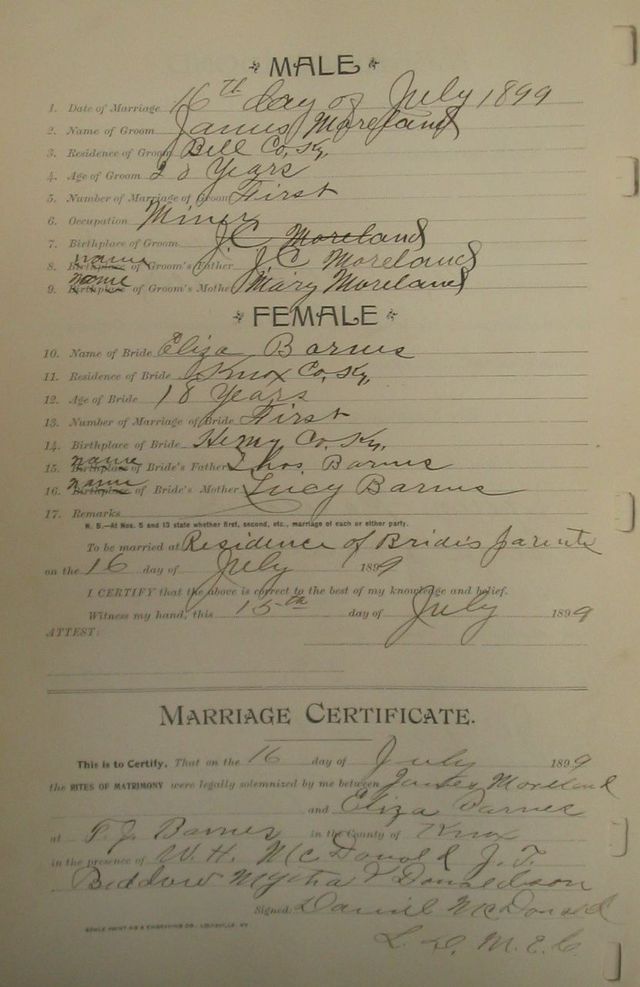 MALE
1. Date of Marriage 16th day of July 1899
2. Name of Groom James Moreland
3. Residence of Groom Bell Co, Ky,
4. Age of Groom 20 Years
5. Number of Marriage of Groom First
6. Occupation Miner
7. Birthplace of Groom J.C Moreland
8. Birthplace name of Groom's Father J C Moreland
9. Birthplace name of Groom's Mother Mary Moreland
FEMALE
10. Name of Bride Eliza Barnes
11. Residence of Bride Knox Co, Ky,
12. Age of Bride 18 Years
13. Number of Marriage of Bride First
14. Birthplace of Bride Henry Co, Ky,
15. Birthplace name of Bride's Father Thos. Barnes
16. Birthplace name of Bride's Mother Lucy Barnes
17. Remarks
N. B.—At Nos. 5 and 13 state whether first, second, etc., marriage of each or either party.
To be married at Residence of Bride's parents
on the 16 day of July 1899
I CERTIFY that the above is correct to the best of my knowledge and belief.
Witness my hand, this 15th day of July 1899
ATTEST:
MARRIAGE CERTIFICATE.
This is to Certify, That on the 16 day of July 1899
the RITES OF MATRIMONY were legally solemnized by me between James Moreland
and Eliza Barnes
at T. J. Barnes in the County of Knox
in the presence of W. H. McDonol & J. T.
Biddow Donaldson
Signed: Daniel McDonald
L. D. M. E. C.
PRINTING & ENGRAVING CO., LOUISVILLE, KY